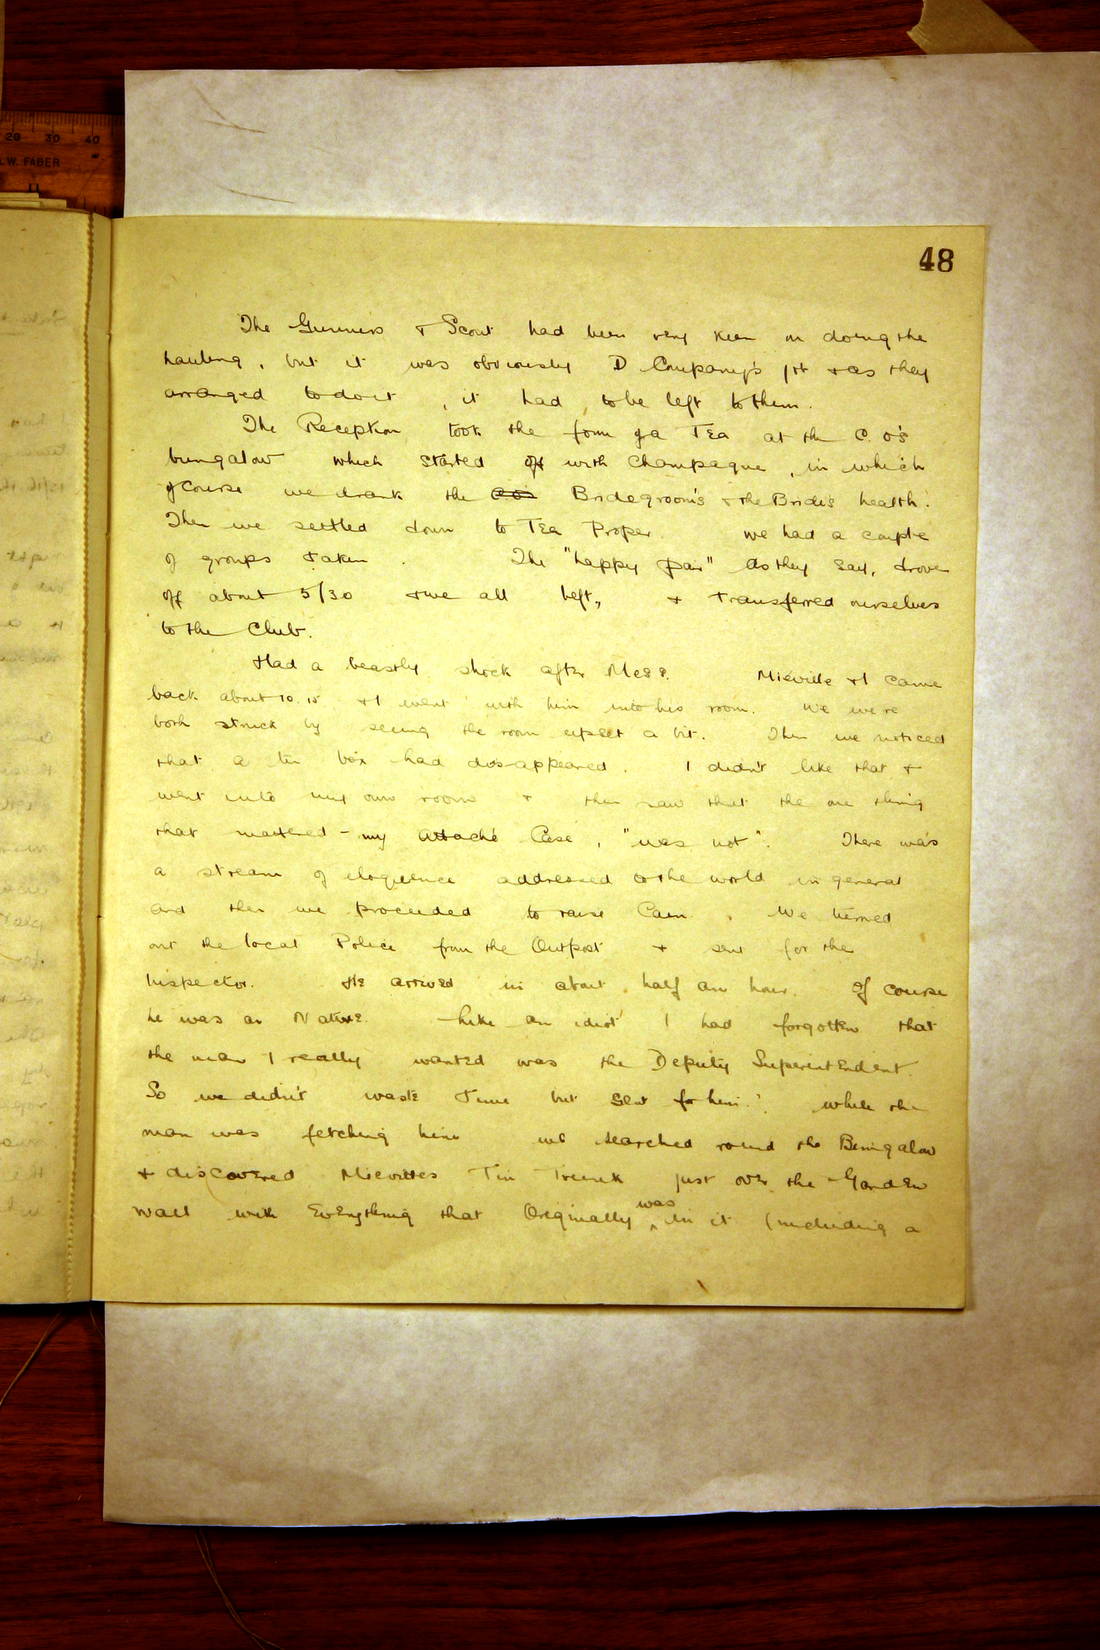 48
The Gunners & Scout had been very keen on doing the
hauling, but it was obviously D Company's jot & as they
arranged to do it, it had to be left to them.
The Reception took the form of a Tea at the C.O's
bungalow which started off with Champagne, in which
of course we drank the Bridegroom's & the Bride's health.
Then we settled down to Tea Proper. We had a couple
of groups taken. The "happy pair" as they say, drove
off about 5/30 & we all left, & transferred ourselves
to the Club.
Had a beastly shock after Mess. Mieville & I came
back about 10.15 & I went with him into his room. We were
both struck by seeing the room upset a bit. Then we noticed
that a tin box had disappeared. I didn't like that &
went into my own room & then saw that the one thing
that mattered - my attaché Case, "was not". There was
a stream of eloquence addressed to the world in general
and then we proceeded to raise Cain. We turned
out the local Police from the Outpost & sent for the
Inspector. He arrived in about half an hour. Of course
he was a Native. Like an idiot I had forgotten that
the man I really wanted was the Deputy Superintendent.
So we didn't waste time but sent for him. While the
man was fetching him we searched round the Bungalow
& discovered Mievilles Tin Trunk just over the Garden
wall with Everything that Originally was in it (including a
20 30 40
W. FABER